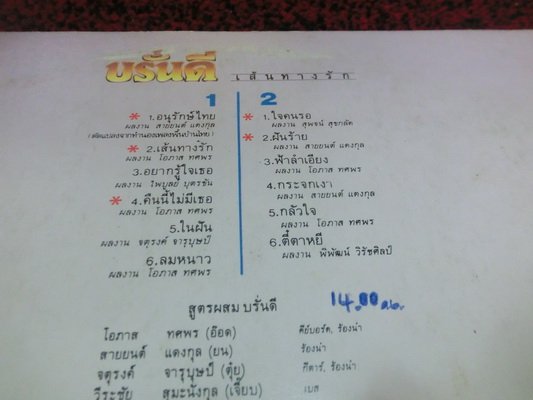 บรั่นดี เส้นทางรัก
1
* 1.อนุรักษ์ไทย
ผลงาน สายยนต์ แดงกุล
(ดัดแปลงจากทำนองเพลงพื้นบ้านไทย)
* 2.เส้นทางรัก
ผลงาน โอภาส ทศพร
3.อยากรู้ใจเธอ
ผลงาน ไพบูลย์ บุตรขัน
* 4.คืนนี้ไม่มีเธอ
ผลงาน โอภาส ทศพร
5.ในฝัน
ผลงาน จตุรงค์ จารุบุษป์
6.ลมหนาว
ผลงาน โอภาส ทศพร
2
* 1.ใจคนรอ
ผลงาน สุพจน์ สุขกลัด
* 2.ฝันร้าย
ผลงาน สายยนต์ แดงกุล
3.ฟ้าลำเอียง
ผลงาน โอภาส ทศพร
4.กระจกเงา
ผลงาน สายยนต์ แดงกุล
5.กลัวใจ
ผลงาน โอภาส ทศพร
6.ตี๋ตาหยี
ผลงาน พิพัฒน์ วิรัชศิลป์
สูตรผสม บรั่นดี
14.00 น.
โอภาส ทศพร (อ๊อด) คีย์บอร์ด, ร้องนำ
สายยนต์ แดงกุล (ยน) ร้องนำ
จตุรงค์ จารุบุษป์ (ตุ๋ย) กีตาร์, ร้องนำ
วีระชัย สุมะนังกุล (เจี๊ยบ) เบส